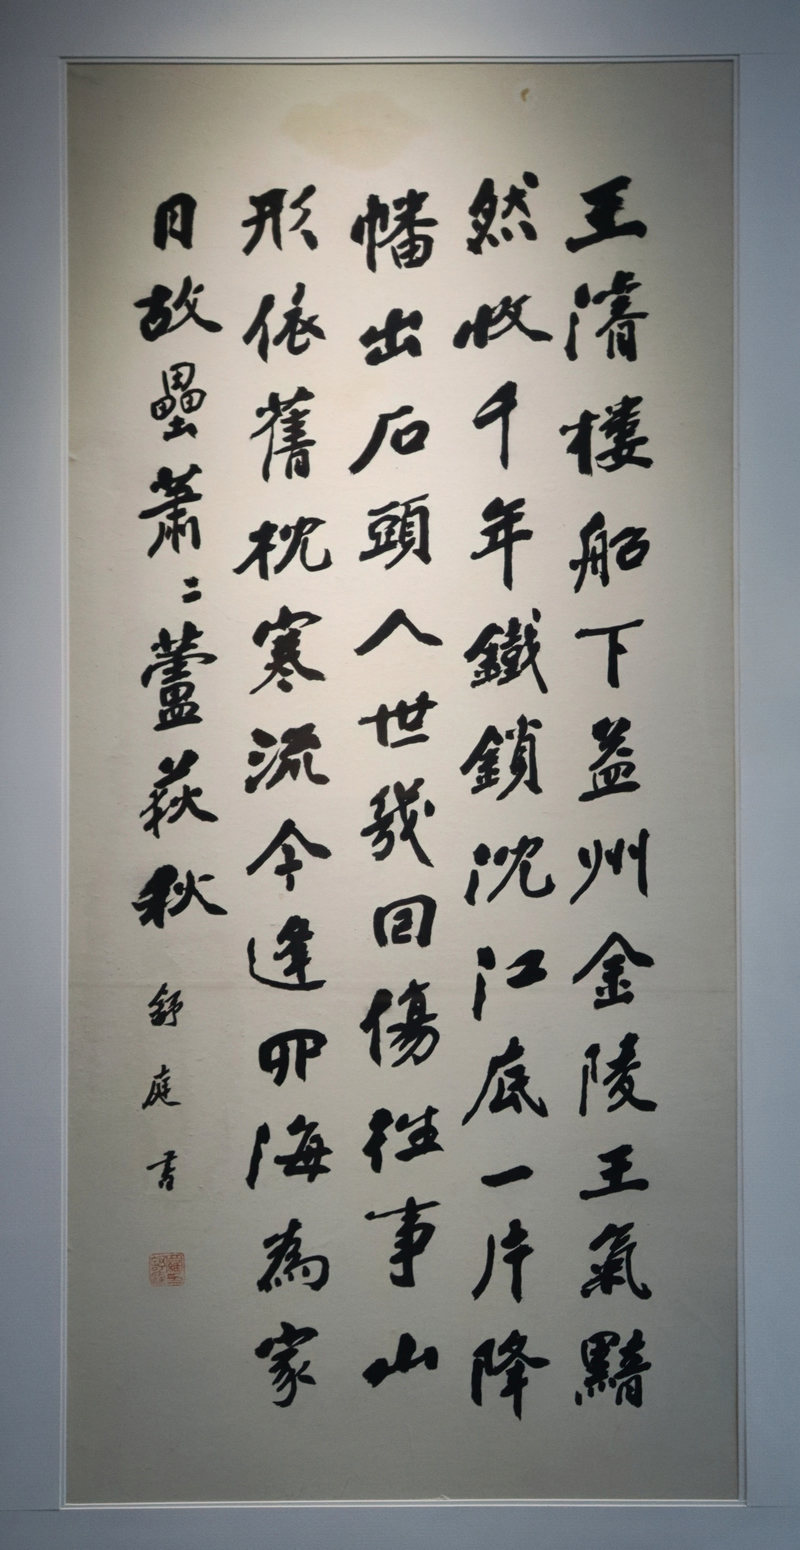 王濬樓船下益州金陵王氣黯
然收千年鐵鎖沈江底一片降
幡出石頭人世幾回傷往事山
形依舊枕寒流今逢四海為家
日故壘蕭〻蘆荻秋
舒庭書